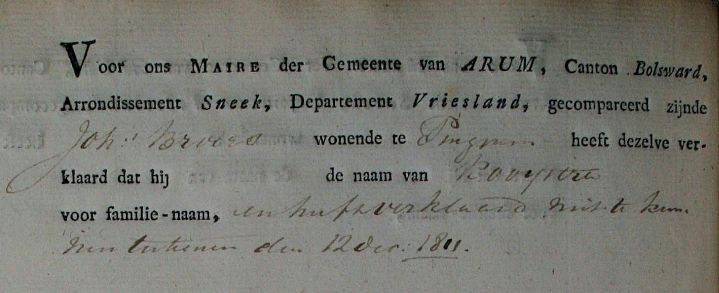 Voor ons MAIRE der Gemeente van ARUM, Canton Bolsward,
Arrondissement Sneek, Departement Vriesland, gecompareerd zijnde
Joh.s wonende te Pingjum heeft dezelve ver-
klaard dat hij de naam van
voor familie-naam, en heeft verklaard niet te kun
nen tekenen den 12 dec: 1811.